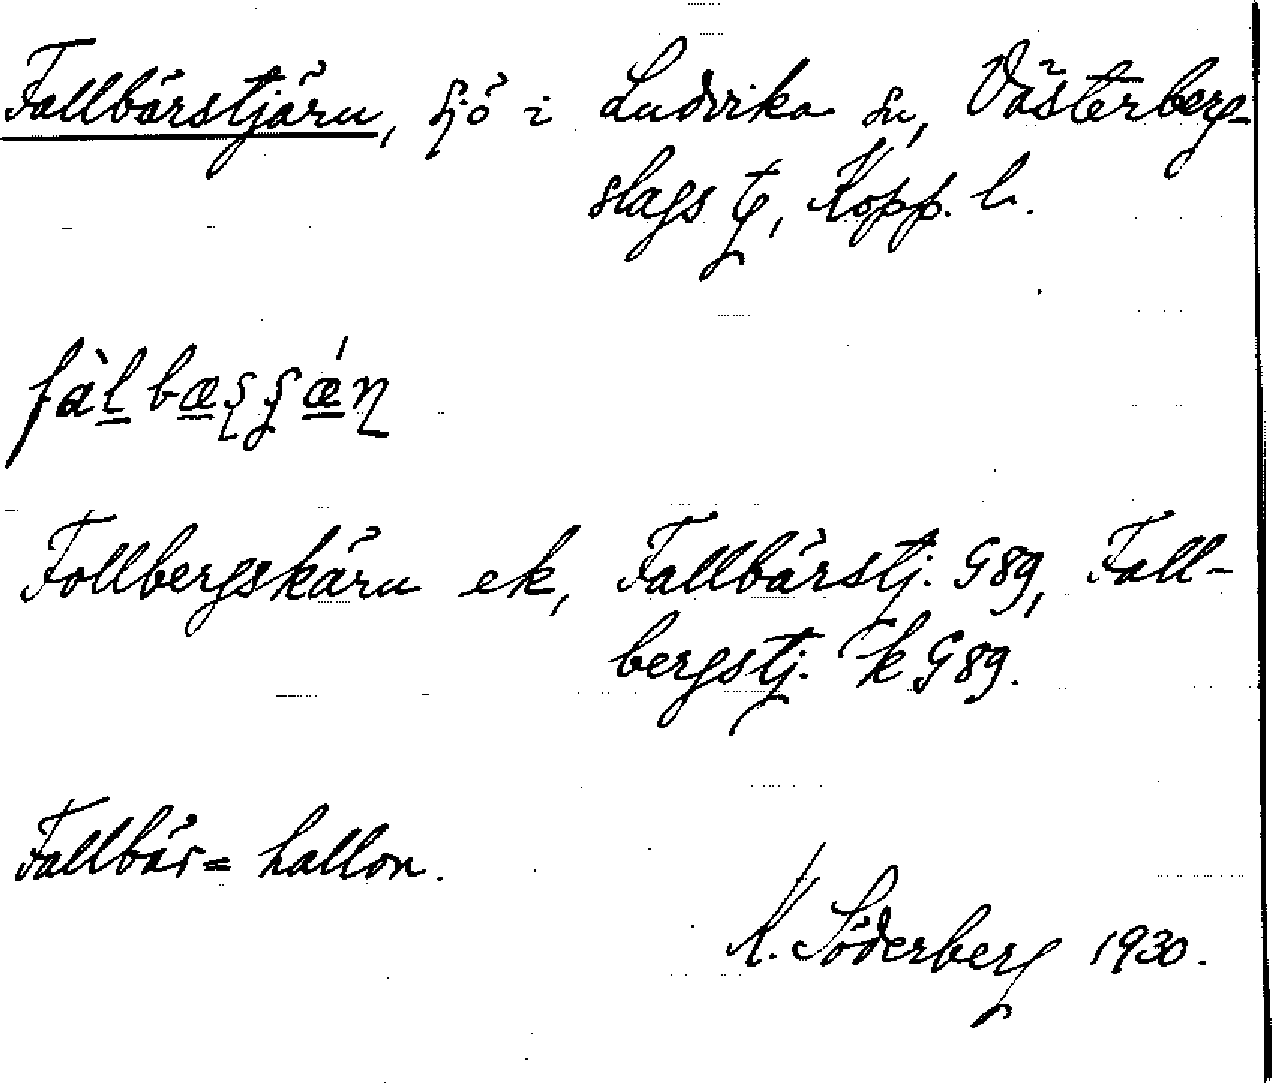 Fallbärstjärn, sjö i Ludvika sn, Västerberg-
slags tg, Kopp. l.
fàlbæʂʂǽɳ
Follbergskärn ek, Fallbärstj. G89, Fall-
bergstj. k G89.
Fallbär = hallon.
K. Söderberg 1930.